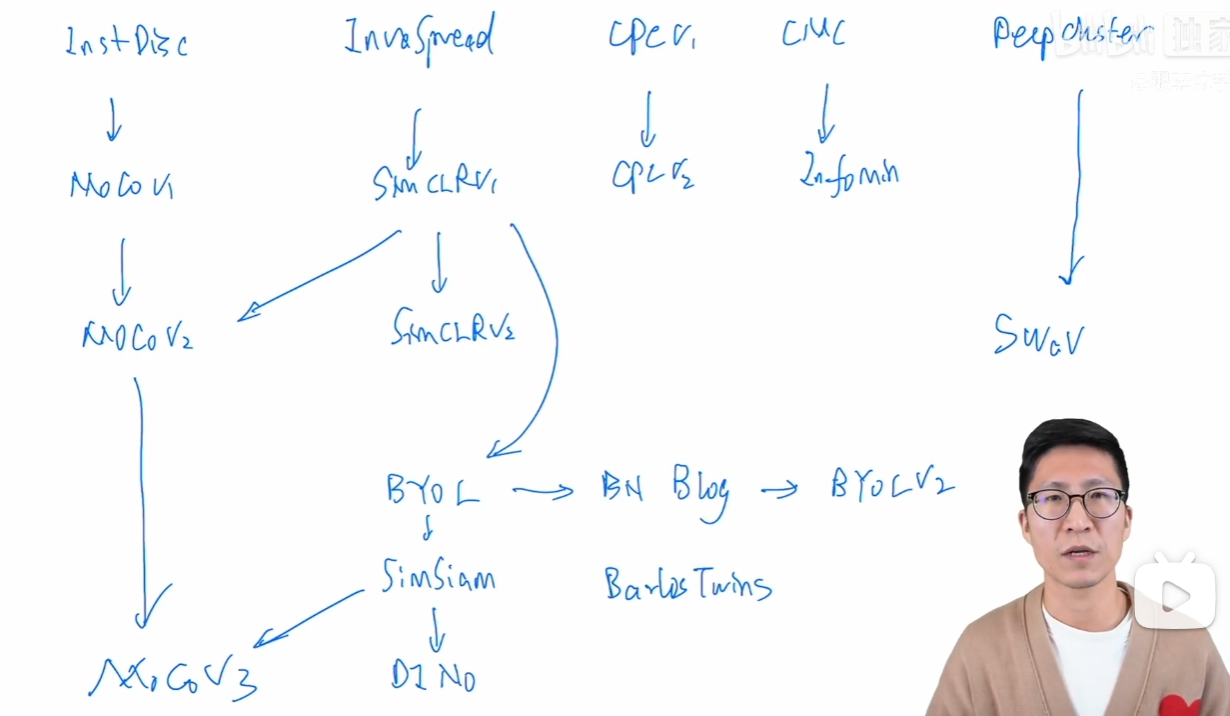 InstDisc InvaSpread CPCV1 CMC DeepCluster
MoCoV1 SimCLRV1 CPCV2 Infomin
MoCoV2 SimCLRV2 SwaV
BYOL BN Blog BYOLV2
SimSiam BarlosTwins
MoCoV3 DINO
bilibili 独家